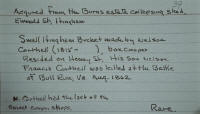 39
Acquired from the Burns estate collapsing shed,
Emerald St. Hingham
Small Hingham Bucket made by Nelson
Corthell (1815- ), box cooper
Resided on Hersey St. His son Nelson
Francis Corthell was killed at the Battle
of Bull Run, Va Aug. 1862
N. Corthell had the last of the
bucket cooper shops.
Rare.